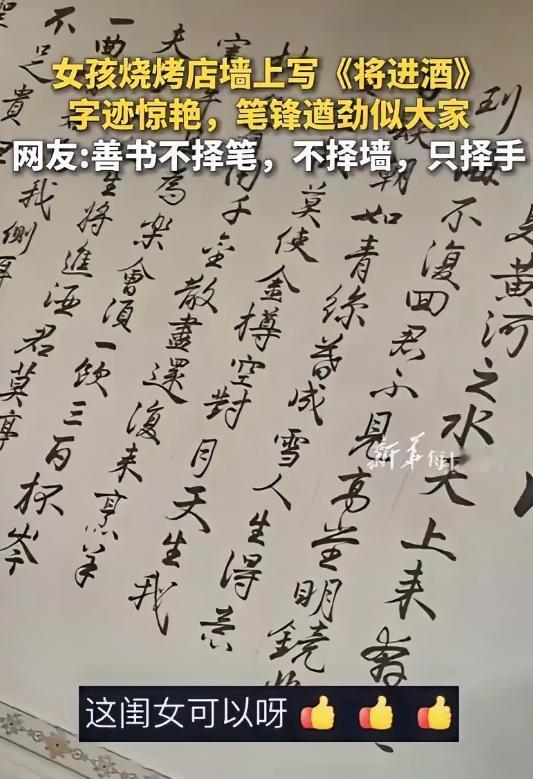 女孩烧烤店墙上写《将进酒》
字迹惊艳，笔锋遒劲似大家
网友:善书不择笔，不择墙，只择手
見黄河之水天上来奔
到海不復回君不見高堂明鏡
朝如青絲暮成雪人生得意
莫使金樽空對月天生我
用千金散盡還復来烹羊
為樂會須一飲三百杯岑
夫生將進酒君莫停
一曲我側耳
不足貴
新华每日
这闺女可以呀👍👍👍